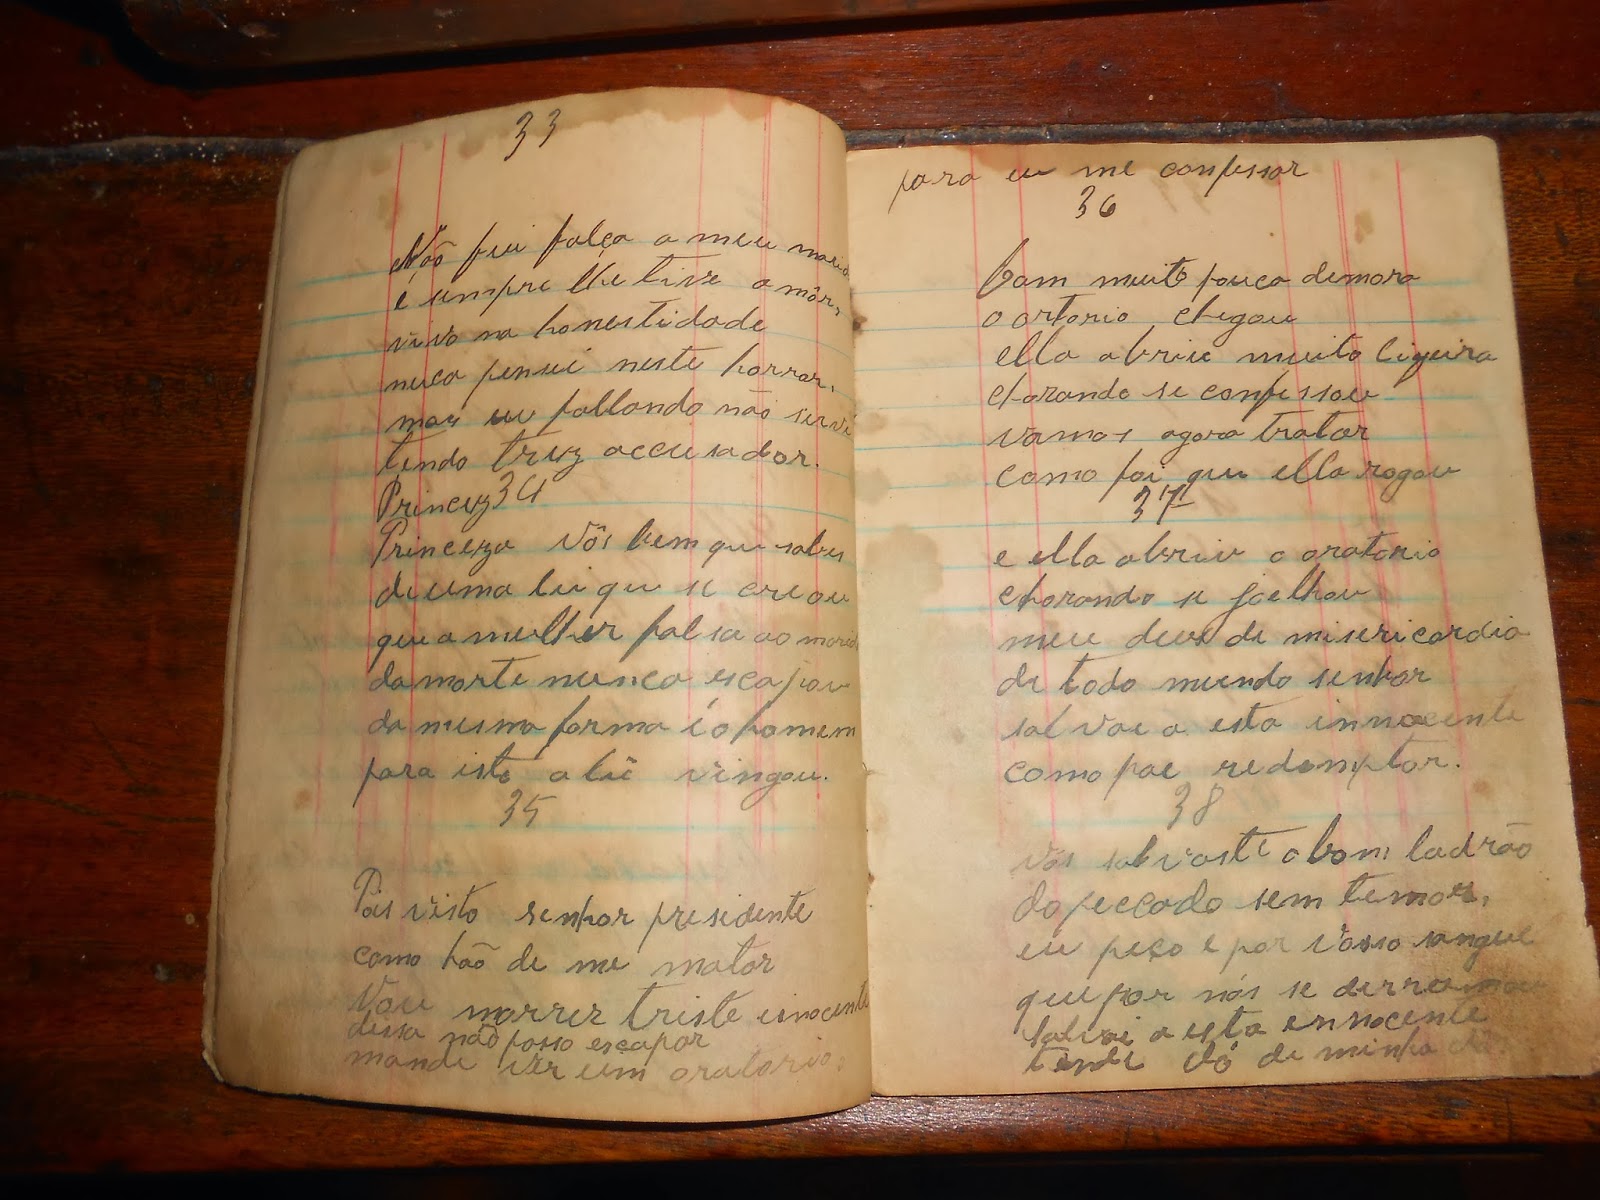 33
Não fui falça a meu marido
é sempre lhe tive amôr,
vivo na honestidade
nuca pensei neste horror,
mas eu fallando não servi
tendo trez accusador.
Princez 34
Princeza Vós bem que sabes
de uma lei que se creou
que a mulher falsa ao marido
da morte nunca escapou
da mesma forma é o homem
para isto a lei vingou.
35
Pois visto senhor presidente
como hão de me matar
Vou morrer triste innocente
dessa não posso escapar
mande vir um oratorio,
para eu me confessar
36
Com muito pouca demora
o ortorio chegou
ella abriu muito ligeira
chorando se confessou
vamos agora tratar
como foi que ella rogou
37
e ella abriu o oratorio
chorando se joelhou
meu deus de misericordia
de todo mundo senhor
salvai a esta innocente
como pae redemptor.
38
Vós salvaste o bom ladrão
do peccado sem temor,
eu peço e por vosso sangue
que por nós se derramou
salvai a esta ennocente
tende dó de minha